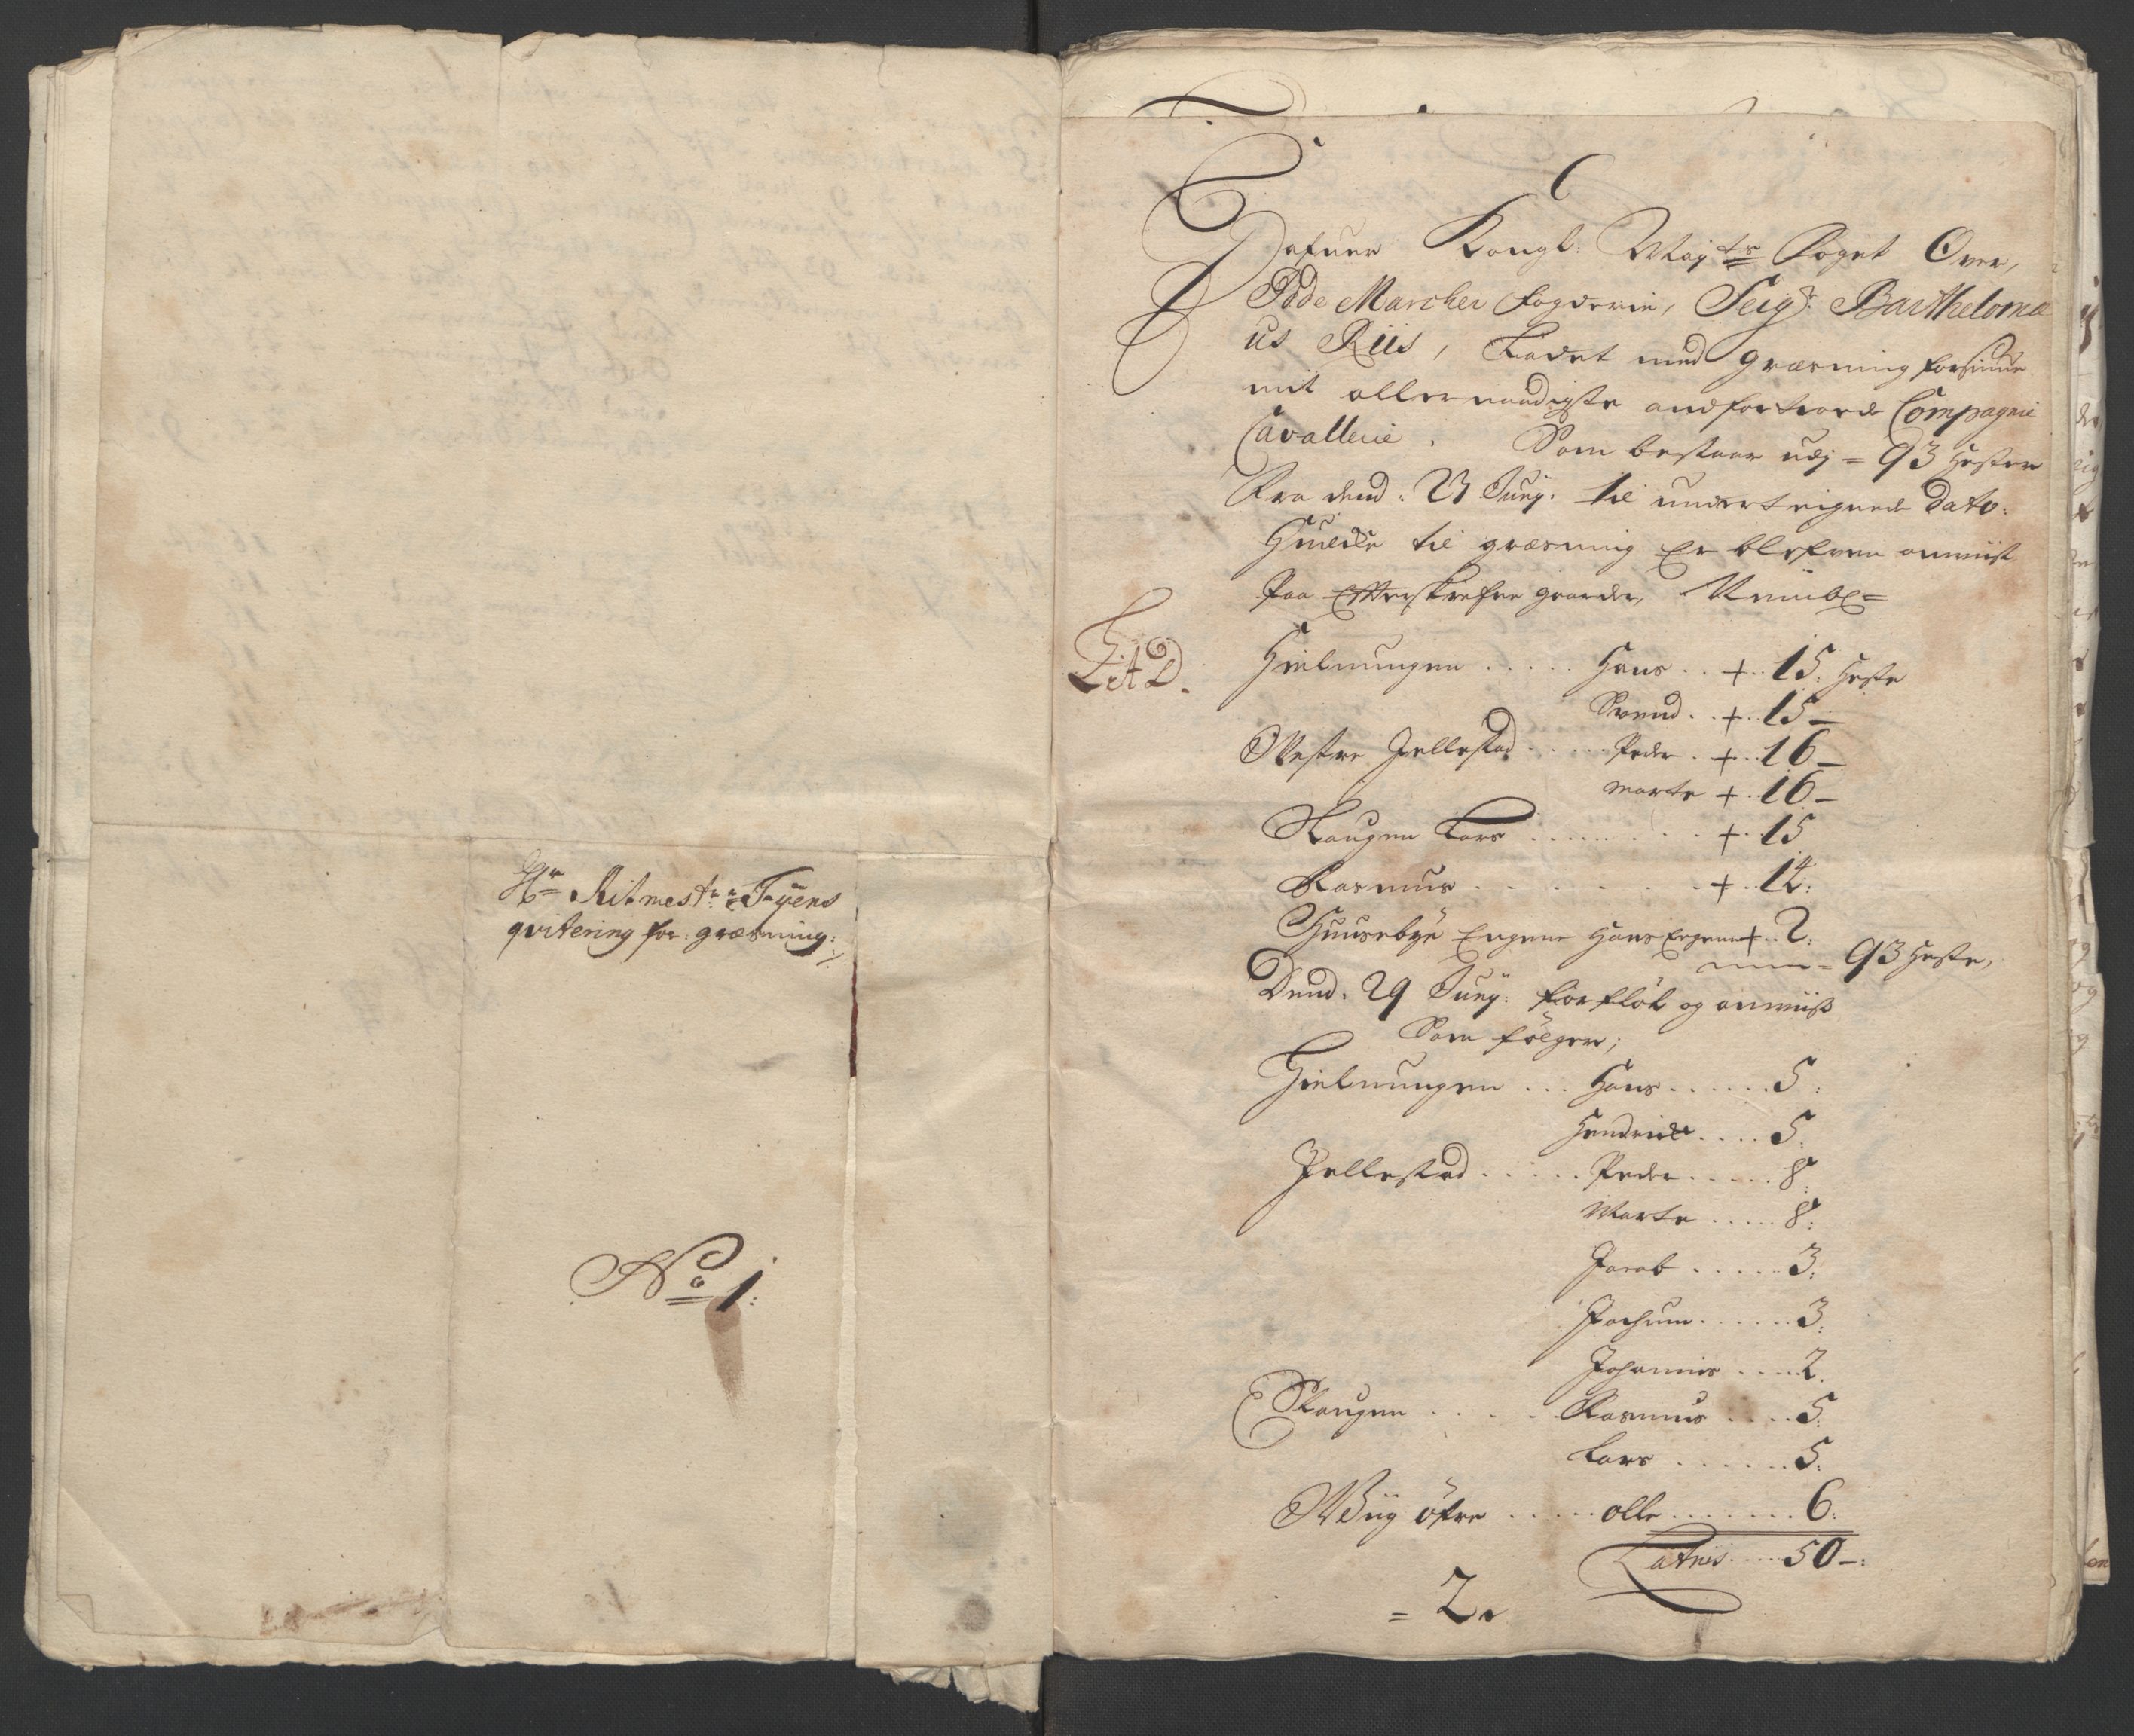 Hr Ritmestr: Tyens
qvitering for græsning:
No 1:
Hafuer Kongl: Mayts Foget Over
Idde Marcher fogderie, Seigr: Bartholomæ
us Riis, Ladet med græsning forsiune
mit allernaadigste anfortroede Compagnie
Cavallerie. Som bestaar udj = 93 Hester
Fra dend: 23 Junj: til underteignede Dato:
Huilche til græsning Er blefven anwiist
Paa Effterskrefne gaarder, Nemblig=
Lit A D.
Hielmungen ..... Hans .. + .. 15: Heste
Svend .. + .. 15 –
Westre Jellestad ..... Peder . + .. 16 –
Marte + . 16 –
Skaugen Lars ........ + .. 15
Rasmus ....... + .. 14:
Huusebye Engene Hans + .. 2:
= 93 Heste,
Dend: 29 Junj: forfløt og anwiist
Som følger;
Hielmungen ... Hans ...... 5:
Hendrich .... 5:
Jellestad ..... Peder ..... 8:
Marte ..... 8:
Jacob ..... 3:
Jochum ...... 3:
Johannis .... 2.
Skaugen .... Rasmus .... 5:
Lars ...... 5:
Wiig øfre ..... olle ....... 6:
Latris .... 50 –:
= 2.